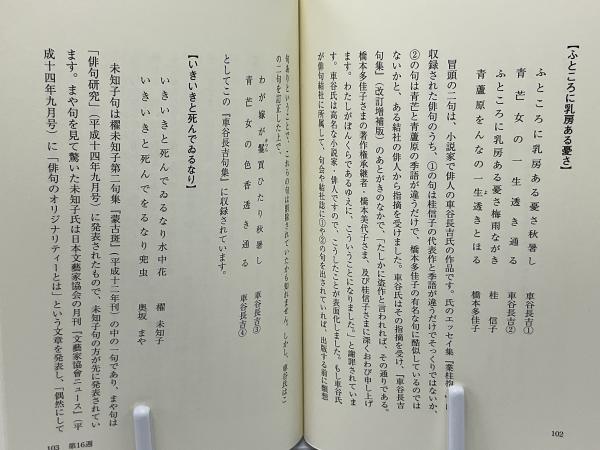 【ふところに乳房ある憂さ】
ふところに乳房ある憂さ秋暑し 車谷長吉①
青芒女の一生透き通る 車谷長吉②
ふところに乳房ある憂さ梅雨ながき 桂 信子
青蘆原をんなの一生透きとほる 橋本多佳子
冒頭の二句は、小説家で俳人の車谷長吉氏の作品です。氏のエッセイ集『業柱抱き』に
収録された俳句のうち、①の句は桂信子の代表作と季語が違うだけでそっくりではないか、
②の句は青芒と青蘆原の季語が違うだけで、橋本多佳子の有名な句に酷似しているのでは
ないかと、ある結社の俳人から指摘を受けました。車谷氏はその指摘を受け、『車谷長吉
句集』（改訂増補版）のあとがきのなかで、「たしかに盗作と言われれば、その通りである。
橋本多佳子さまの著作権承継者・橋本美代子さま、及び桂信子さまに深くおわび申し上げ
ます。わたしがぼんくらであるゆえに、こういうことになりました。」と謝罪されていま
す。車谷氏は高名な小説家・俳人ですので、こうしたことが表面化しました。もし車谷氏
が俳句結社に所属して、句会や結社誌に①や②の句を出されていれば、出版する前に類想
句ありということで、これらの句は削除されていたかも知れません。しかし、車谷氏はこ
の二句を訂正した上で、
わが嫁が鬘買ひたり秋暑し 車谷長吉③
青芒女の色香透き通る 車谷長吉④
としてこの『車谷長吉句集』に収録されています。
【いきいきと死んでゐるなり】
いきいきと死んでゐるなり水中花 櫂 未知子
いきいきと死んでをるなり兜虫 奥坂 まや
未知子句は櫂未知子第二句集『蒙古斑』（平成十二年刊）の中の一句であり、まや句は
「俳句研究」（平成十四年九月号）に発表されたもので、未知子句の方が先に発表されてい
ます。まや句を見て驚いた未知子氏は日本文藝家協会の月刊『文藝家協會ニュース』（平
成十四年九月号）に「俳句のオリジナリティーとは」という文章を発表し、「偶然にして
102
103 第16週